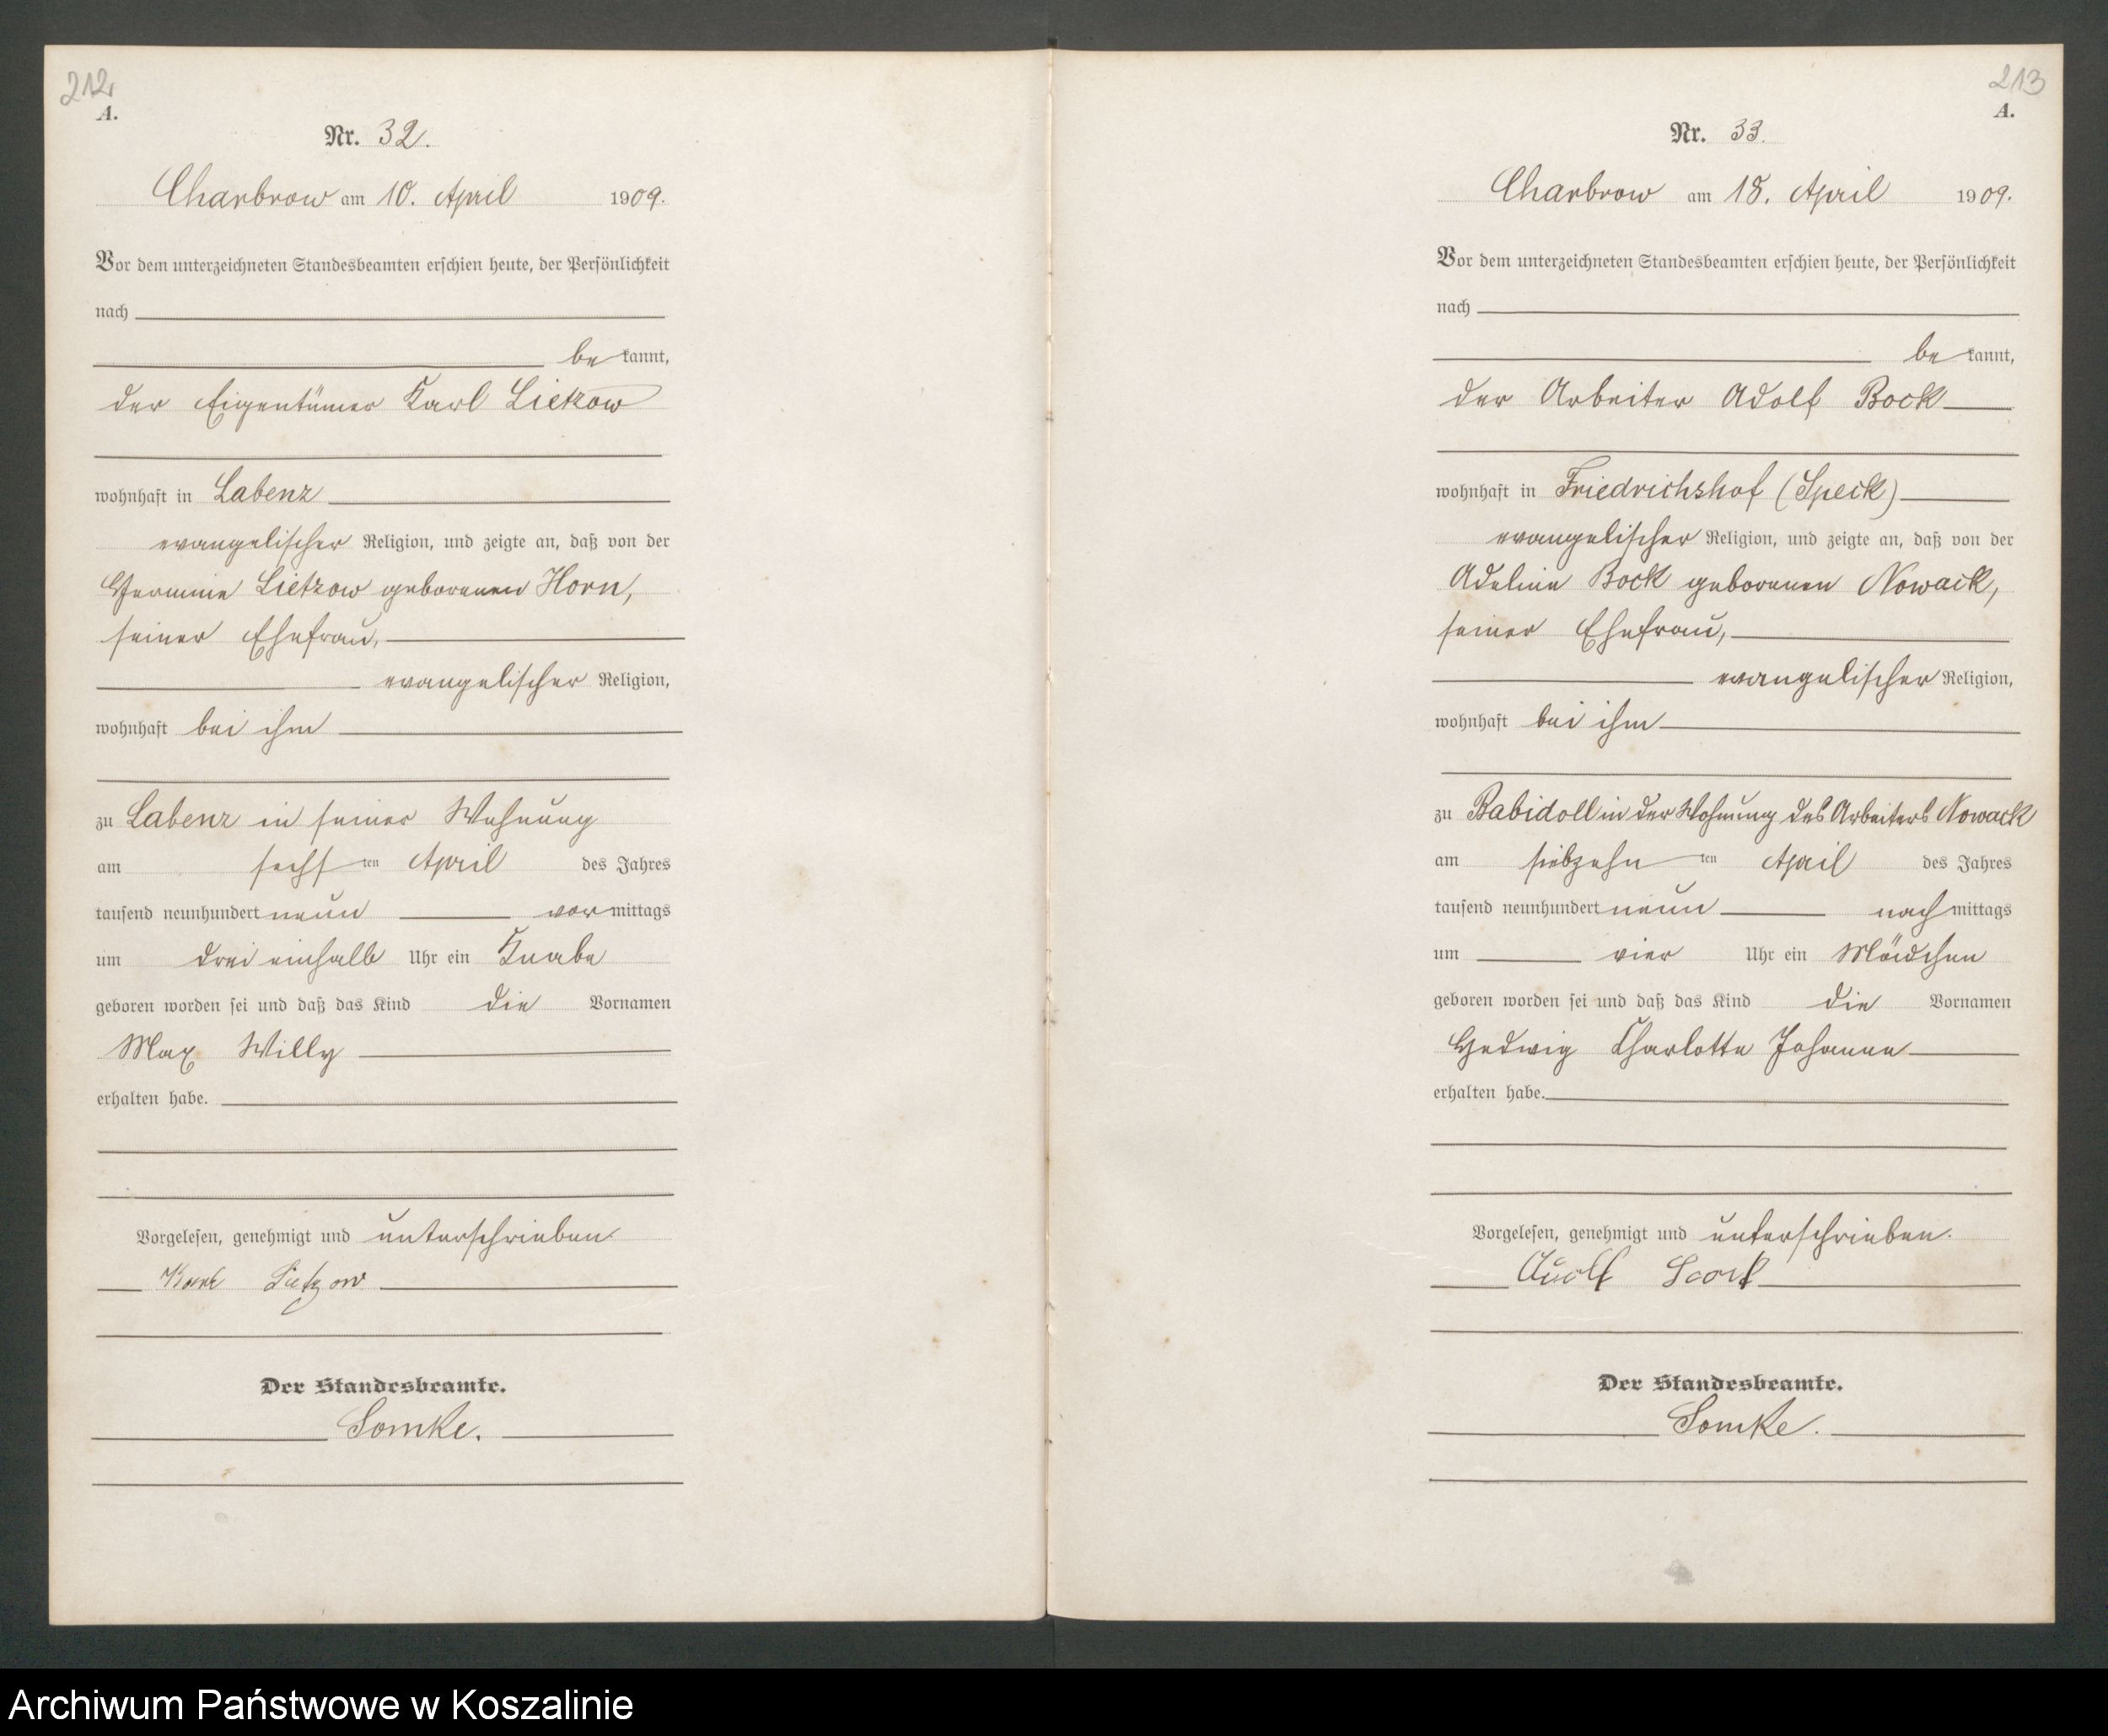 212
A.
Nr. 32.
Charbrow am 10. April 1909.
Vor dem unterzeichneten Standesbeamten erschien heute, der Persönlichkeit
nach
be kannt,
der Eigentümer Karl Lietzow
wohnhaft in Labenz
evangelischer Religion, und zeigte an, daß von der
Hermine Lietzow geborenen Horn,
seiner Ehefrau,
evangelischer Religion,
wohnhaft bei ihm
zu Labenz in seiner Wohnung
am sechs ten April des Jahres
tausend neunhundert neun vor mittags
um drei einhalb Uhr ein Knabe
geboren worden sei und daß das Kind die Vornamen
Max Willy
erhalten habe.
Vorgelesen, genehmigt und unterschrieben
Karl Lietzow
Der Standesbeamte.
Somke.
213
A.
Nr. 33.
Charbrow am 18. April 1909.
Vor dem unterzeichneten Standesbeamten erschien heute, der Persönlichkeit
nach
be kannt,
der Arbeiter Adolf Bock
wohnhaft in Friedrichshof (Speck)
evangelischer Religion, und zeigte an, daß von der
Adeline Bock geborenen Nowack,
seiner Ehefrau,
evangelischer Religion,
wohnhaft bei ihm
zu Babidoll in der Wohnung des Arbeiters Nowack
am siebzehn ten April des Jahres
tausend neunhundert neun nach mittags
um vier Uhr ein Mädchen
geboren worden sei und daß das Kind die Vornamen
Hedwig Charlotte Johanne
erhalten habe.
Vorgelesen, genehmigt und unterschrieben.
Adolf Bock
Der Standesbeamte.
Somke.
Archiwum Państwowe w Koszalinie